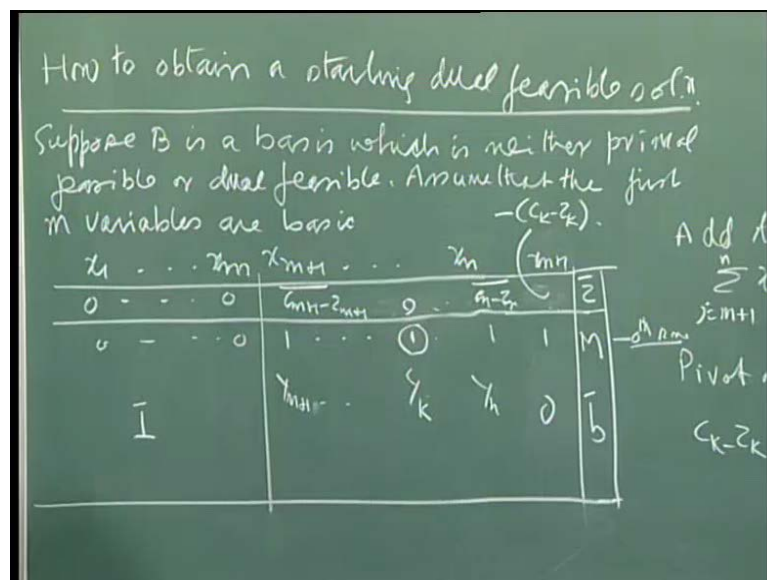 How to obtain a starting dual feasible sol.n.
Suppose B is a basis which is neither primal
feasible or dual feasible. Assume that the first
m variables are basic
-(cₖ-zₖ).
x₁ . . . xₘ xₘ₊₁ . . . xₙ xₙ₊₁
0 - - - 0 cₘ₊₁-zₘ₊₁ 0 . . cₙ-zₙ z̄
0 - - - 0 1 . . . 1 . 1 1 M - 0th Row
Yₘ₊₁ . . Yₖ Yₙ 0
I b̄
Add
n
Σ
j=m+1
Pivot
cₖ-zₖ